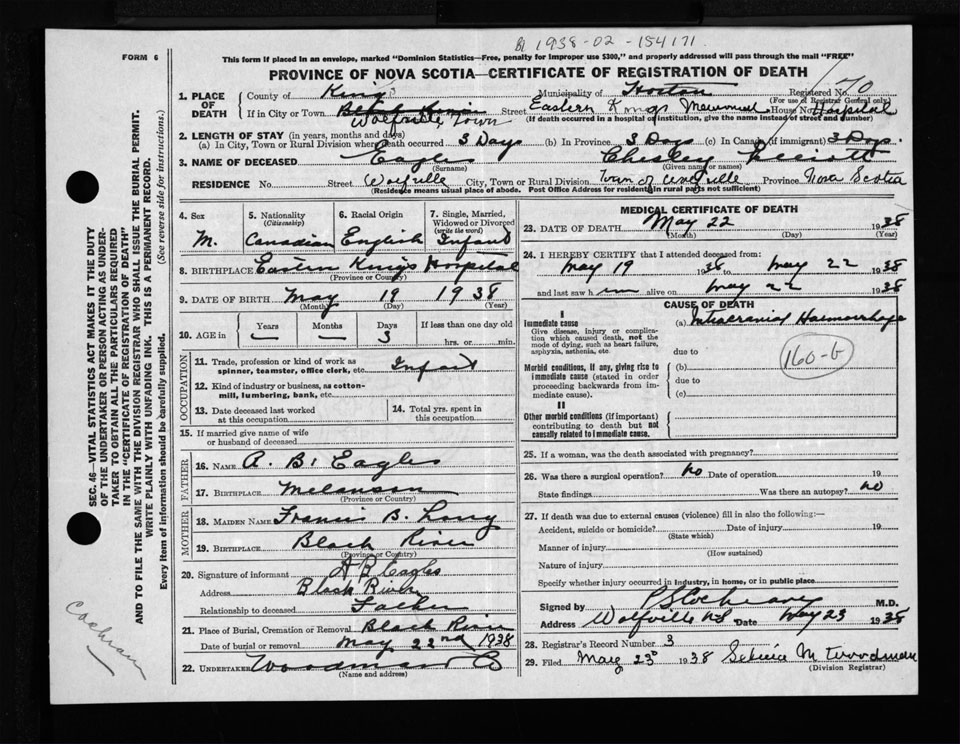 1938-02-154171
FORM 6
This form if placed in an envelope, marked "Dominion Statistics—Free, penalty for improper use $300," and properly addressed will pass through the mail "FREE"
PROVINCE OF NOVA SCOTIA—CERTIFICATE OF REGISTRATION OF DEATH
1. PLACE OF DEATH
County of Kings Municipality of Horton Registered No. 70
(For use of Registrar General only)
If in City or Town Wolfville Town Street Eastern Kings Memorial House No. Hospital
(If death occurred in a hospital of institution, give the name instead of street and number)
2. LENGTH OF STAY (in years, months and days)
(a) In City, Town or Rural Division where death occurred 3 Days (b) In Province 3 Days (c) In Canada (if immigrant) 3 Days.
3. NAME OF DECEASED Eagles Chesley Elliott
(Surname) (Given name or names)
RESIDENCE No. Street Wolfville City, Town or Rural Division Town of Wolfville Province Nova Scotia
(Residence means usual place of abode. Post Office Address for residents in rural parts not sufficient)
4. Sex
M.
5. Nationality
(Citizenship)
Canadian
6. Racial Origin
English
7. Single, Married, Widowed or Divorced
(write the word)
Infant
8. BIRTHPLACE Eastern Kings Hospital
(Province or Country)
9. DATE OF BIRTH May 19 1938
(Month) (Day) (Year)
10. AGE in
Years Months Days If less than one day old
— — 3 hrs. or min.
OCCUPATION
11. Trade, profession or kind of work as spinner, teamster, office clerk, etc. Infant
12. Kind of industry or business, as cotton-mill, lumbering, bank, etc.
13. Date deceased last worked at this occupation
14. Total yrs. spent in this occupation
15. If married give name of wife or husband of deceased
FATHER
16. NAME A. B. Eagles
17. BIRTHPLACE Melanson
(Province or Country)
MOTHER
18. MAIDEN NAME Francis B. Long
19. BIRTHPLACE Black River
(Province or Country)
20. Signature of informant A B Eagles
Address Black River
Relationship to deceased Father
21. Place of Burial, Cremation or Removal Black River
Date of burial or removal May 22nd 1938
22. UNDERTAKER Woodman
(Name and address)
MEDICAL CERTIFICATE OF DEATH
23. DATE OF DEATH May 22 1938
(Month) (Day) (Year)
24. I HEREBY CERTIFY that I attended deceased from
May 19 1938 to May 22 1938
and last saw him alive on May 22 1938
CAUSE OF DEATH
I
Immediate cause
Give disease, injury or complication which caused death, not the mode of dying, such as heart failure, asphyxia, asthenia, etc.
(a) Intracranial Haemorrhage
160-b
due to
Morbid conditions, if any, giving rise to immediate cause (stated in order proceeding backwards from immediate cause).
(b)
due to
(c)
II
Other morbid conditions (if important) contributing to death but not causally related to immediate cause.
25. If a woman, was the death associated with pregnancy?
26. Was there a surgical operation? No Date of operation 19
State findings Was there an autopsy? No
27. If death was due to external causes (violence) fill in also the following:—
Accident, suicide or homicide? Date of injury 19
(State which)
Manner of injury
(How sustained)
Nature of injury
Specify whether injury occurred in industry, in home, or in public place
Signed by M.D.
Address Wolfville NS Date May 23 1938
28. Registrar's Record Number 3
29. Filed May 23d 1938 M Woodman
(Division Registrar)
SEC. 46—VITAL STATISTICS ACT MAKES IT THE DUTY
OF THE UNDERTAKER OR PERSON ACTING AS UNDER-
TAKER TO OBTAIN ALL THE PARTICULARS REQUIRED
IN THE "CERTIFICATE OF REGISTRATION OF DEATH"
AND TO FILE THE SAME WITH THE DIVISION REGISTRAR WHO SHALL ISSUE THE BURIAL PERMIT.
WRITE PLAINLY WITH UNFADING INK. THIS IS A PERMANENT RECORD.
Every item of information should be carefully supplied. (See reverse side for instructions.)
Cochran